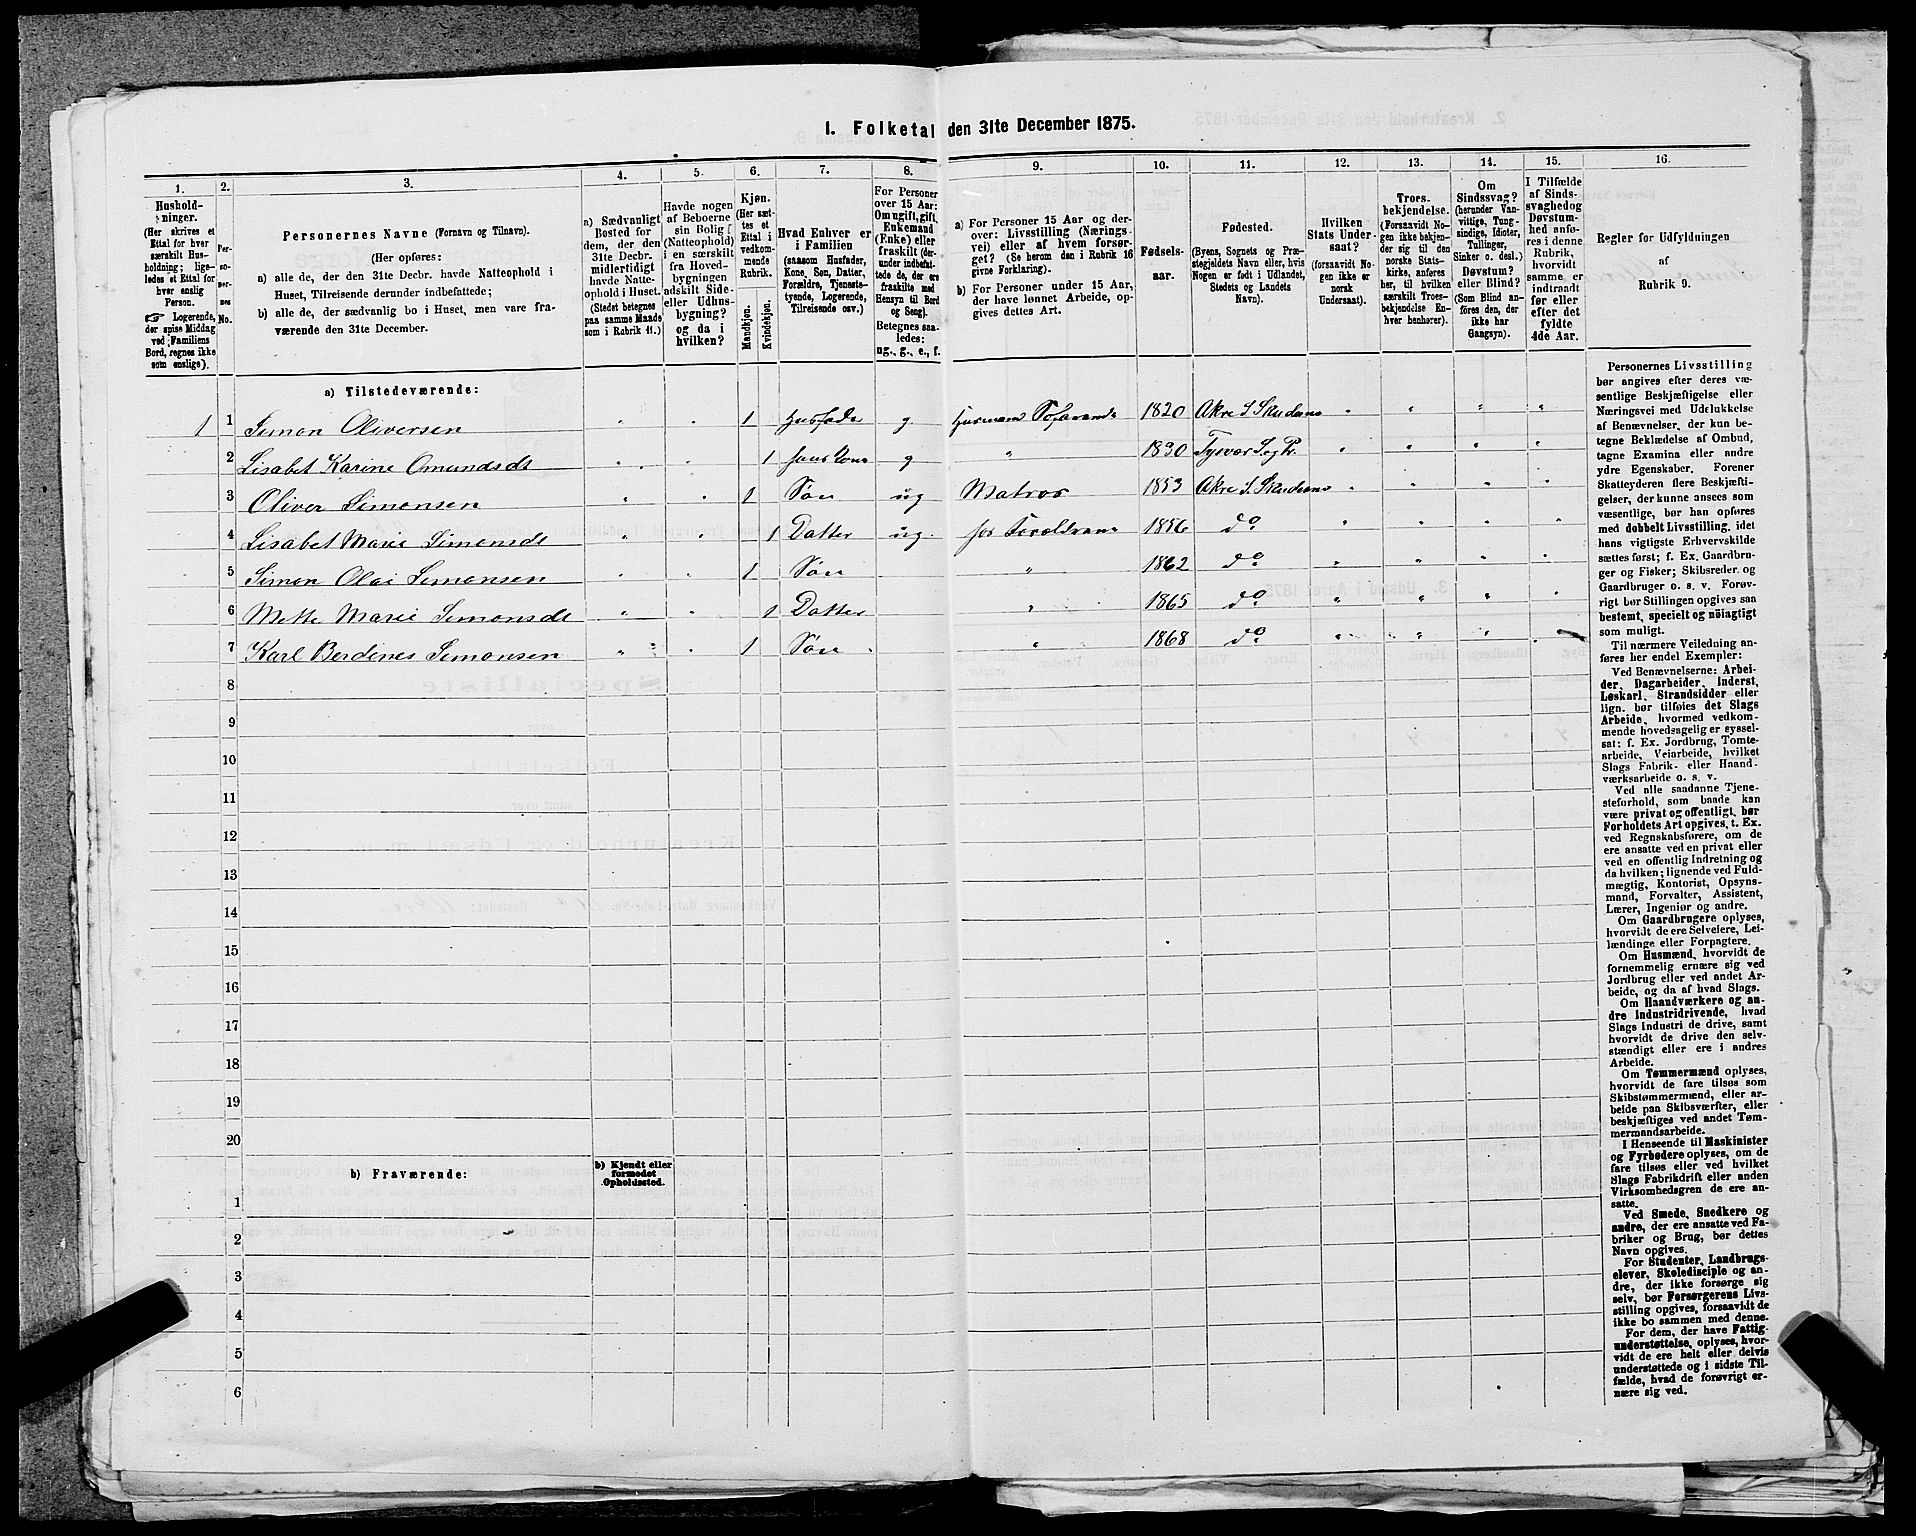 1. Folketal den 31te December 1875.
1.
Husholdninger.
(Her skrives et
Ettal for hver
særskilt Husholdning;
ligeledes et Ettal for
hver enslig
Person.
☞ Logerende,
der spise Middag
ved Familiens
Bord, regnes ikke
som enslige).
2.
Personernes
No.
3.
Personernes Navne (Fornavn og Tilnavn).
(Her opføres:
a) alle de, der den 31te Decbr. havde Natteophold i
Huset, Tilreisende derunder indbefattede;
b) alle de, der sædvanlig bo i Huset, men vare fraværende
den 31te December.
4.
a) Sædvanligt
Bosted for
dem, der den
31te Decbr.
midlertidigt
havde Natteophold
i Huset.
(Stedet betegnes
paa samme Maade
som i Rubrik 11.)
5.
Havde nogen
af Beboerne
sin Bolig
(Natteophold)
i en særskilt
fra Hovedbygningen
adskilt Side-
eller Udhusbygning?
og da i
hvilken?
6.
Kjøn.
(Her sættes
et
Ettal i
vedkommende
Rubrik.
Mandkjøn.
Kvindekjøn.
7.
Hvad Enhver er
i Familien
(saasom Husfader,
Kone, Søn, Datter,
Forældre, Tjenestetyende,
Logerende,
Tilreisende osv.)
8.
For Personer
over 15 Aar:
Om ugift, gift,
Enkemand
(Enke) eller
fraskilt (derunder
indbefattede
de, der ere
fraskilte med
Hensyn til Bord
og Seng).
Betegnes saaledes:
ug., g., e., f.
9.
a) For Personer 15 Aar og derover:
Livsstilling (Næringsvei)
eller af hvem forsørget?
(Se herom den i Rubrik 16
givne Forklaring).
b) For Personer under 15 Aar,
der have lønnet Arbeide, opgives
dettes Art.
10.
Fødselsaar.
11.
Fødested.
(Byens, Sognets og Præstegjeldets
Navn eller, hvis
Nogen er født i Udlandet,
Stedets og Landets
Navn).
12.
Hvilken
Stats Undersaat?
(forsaavidt Nogen
ikke er
norsk
Undersaat).
13.
Troesbekjendelse.
(Forsaavidt Nogen
ikke bekjender
sig til den
norske Statskirke,
anføres
her, til hvilken
særskilt Troesbekjendelse
Enhver
henhører).
14.
Om
Sindssvag?
(herunder Vanvittige,
Tungsindige,
Idioter,
Tullinger,
Sinker o. desl.)
Døvstum?
eller Blind?
(Som Blind anføres
den, der
ikke har
Gangsyn).
15.
I Tilfælde
af Sindssvaghed
og
Døvstumhed
anføres
i denne
Rubrik,
hvorvidt
samme er
indtraadt
før eller
efter det
fyldte
4de Aar.
16.
Regler for Udfyldningen
af
Rubrik 9.
a) Tilstedeværende:
1 1 Simon Oliversen " " 1 Husfader g. Husmand 1820 Akre S. Skudenes " " " "
2 Lisabet Karine Omundsdt " " 1 hans Kone g " 1830 Tysvær S og Pr. " " " "
3 Oliver Simonsen " " 1 Søn ug Matros 1853 Akre S. Skudenes " " " "
4 Lisabet Marie Simonsdt " " 1 Datter ug. hos Forældrene 1856 do " " " "
5 Simon Olai Simonsen " " 1 Søn " 1862 do " " " "
6 Mette Marie Simonsdt " " 1 Datter " 1865 do " " " "
7 Karl Berdines Simonsen " " 1 Søn " 1868 do " " "
8
9
10
11
12
13
14
15
16
17
18
19
20
b) Fraværende:
b) Kjendt eller
formodet
Opholdssted.
1
2
3
4
5
6
Personernes Livsstilling
bør angives efter deres væsentlige
Beskjæftigelse eller
Næringsvei med Udelukkelse
af Benævnelser, der kun betegne
Beklædelse af Ombud,
tagne Examina eller andre
ydre Egenskaber. Forener
Skatteyderen flere Beskjæftigelser,
der kunne ansees som
væsentlige, bør han opføres
med dobbelt Livsstilling, idet
hans vigtigste Erhvervskilde
sættes først; f. Ex. Gaardbruger
og Fisker; Skibsreder og
Gaardbruger o. s. v. Forøvrigt
bør Stillingen opgives saa
bestemt, specielt og nøiagtigt
som muligt.
Til nærmere Veiledning anføres
her endel Exempler:
Ved Benævnelserne: Arbeider,
Dagarbeider, Inderst,
Løskarl, Strandsidder eller
lign. bør tilføies det Slags
Arbeide, hvormed vedkommende
hovedsagelig er sysselsat:
f. Ex. Jordbrug, Tomtearbeide,
Veiarbeide, hvilket
Slags Fabrik- eller Haandværksarbeide
o. s. v.
Ved alle saadanne Tjenesteforhold,
som baade kan
være privat og offentligt, bør
Forholdets Art opgives, t. Ex.
ved Regnskabsførere, om de
ere ansatte ved en privat eller
ved en offentlig Indretning og
da hvilken; lignende ved Fuldmægtig,
Kontorist, Opsynsmand,
Forvalter, Assistent,
Lærer, Ingeniør og andre.
Om Gaardbrugere oplyses,
hvorvidt de ere Selveiere, Leilændinge
eller Forpagtere.
Om Husmænd, hvorvidt de
fornemmelig ernære sig ved
Jordbrug eller ved andet Arbeide,
og da af hvad Slags.
Om Haandværkere og andre
Industridrivende, hvad
Slags Industri de drive, samt
hvorvidt de drive den selvstændigt
eller ere i andres
Arbeide.
Om Tømmermænd oplyses,
hvorvidt de fare tilsøs som
Skibstømmermænd, eller arbeide
paa Skibsværfter, eller
beskjæftiges ved andet Tømmermandsarbeide.
I Henseende til Maskinister
og Fyrbødere oplyses, om de
fare tilsøs eller ved hvilket
Slags Fabrikdrift eller anden
Virksomhedsgren de ere ansatte.
Ved Smede, Snedkere og
andre, der ere ansatte ved Fabriker
og Brug, bør dettes
Navn opgives.
For Studenter, Landbrugselever,
Skoledisciple og andre,
der ikke forsørge sig
selv, bør Forsørgerens Livsstilling
opgives, forsaavidt de
ikke bo sammen med denne.
For dem, der have Fattigunderstøttelse,
oplyses, hvorvidt
de ere helt eller delvis
understøttede og i sidste Tilfælde,
hvad de forøvrigt ernære
sig ved.